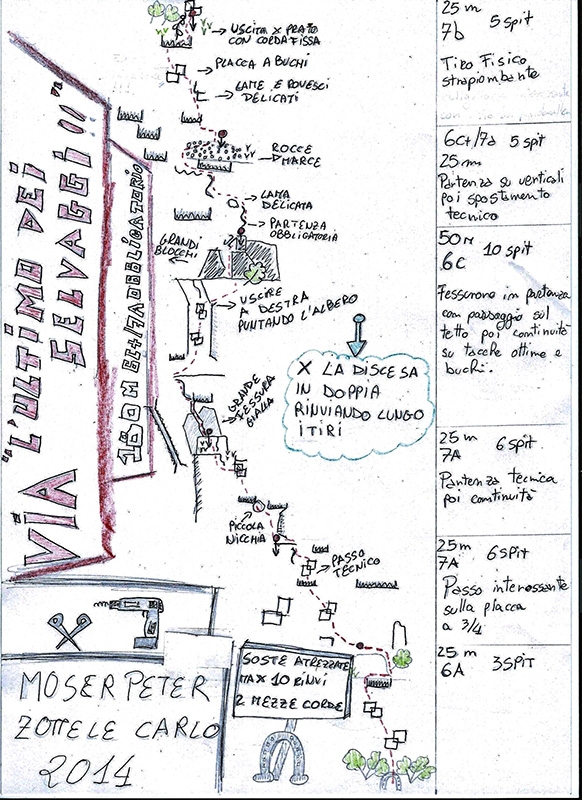 VIA "L'ULTIMO DEI
SELVAGGI"
USCITA X PRATO
CON CORDA FISSA
PLACCA A BUCHI
LAME E ROVESCI
DELICATI
ROCCE
MARCE
LAMA
DELICATA
PARTENZA
OBBLIGATORIA
GRANDI
BLOCCHI
USCIRE
A DESTRA
PUNTANDO L'ALBERO
X LA DISCESA
IN DOPPIA
RINVIANDO LUNGO
I TIRI
GRANDE
FESSURA
GIALLA
PICCOLA
NICCHIA
PASSO
TECNICO
SOSTE ATREZZATE
MAX 10 RINVI
2 MEZZE CORDE
MOSER PETER
ZOTTELE CARLO
2014
25 m
7b 5 spit
Tiro Fisico
strapiombante
6c+/7a 5 spit
25 m
Partenza su verticali
poi spostamento
tecnico
50 M
6C 10 spit
Fessurone in partenza
con passaggio sul
tetto poi continuità
su tacche ottime e
buchi.
25 m
7A 6 spit
Partenza tecnica
poi continuità
25 m
7A 6 SPIT
Passo interessante
sulla placca
a 3/4
25 m
6A 3 SPIT